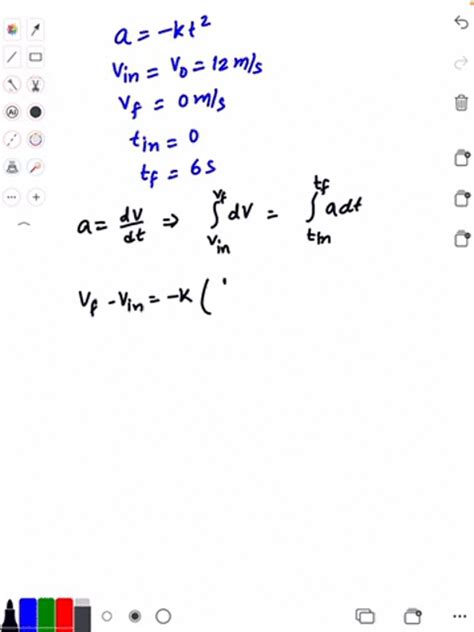 a = -kt²
Vin = V₀ = 12 m/s
Vf = 0 m/s
tin = 0
tf = 6s
a = dV/dt ⇒ ∫_{Vin}^{Vf} dV = ∫_{tin}^{tf} a dt
Vf - Vin = -K (